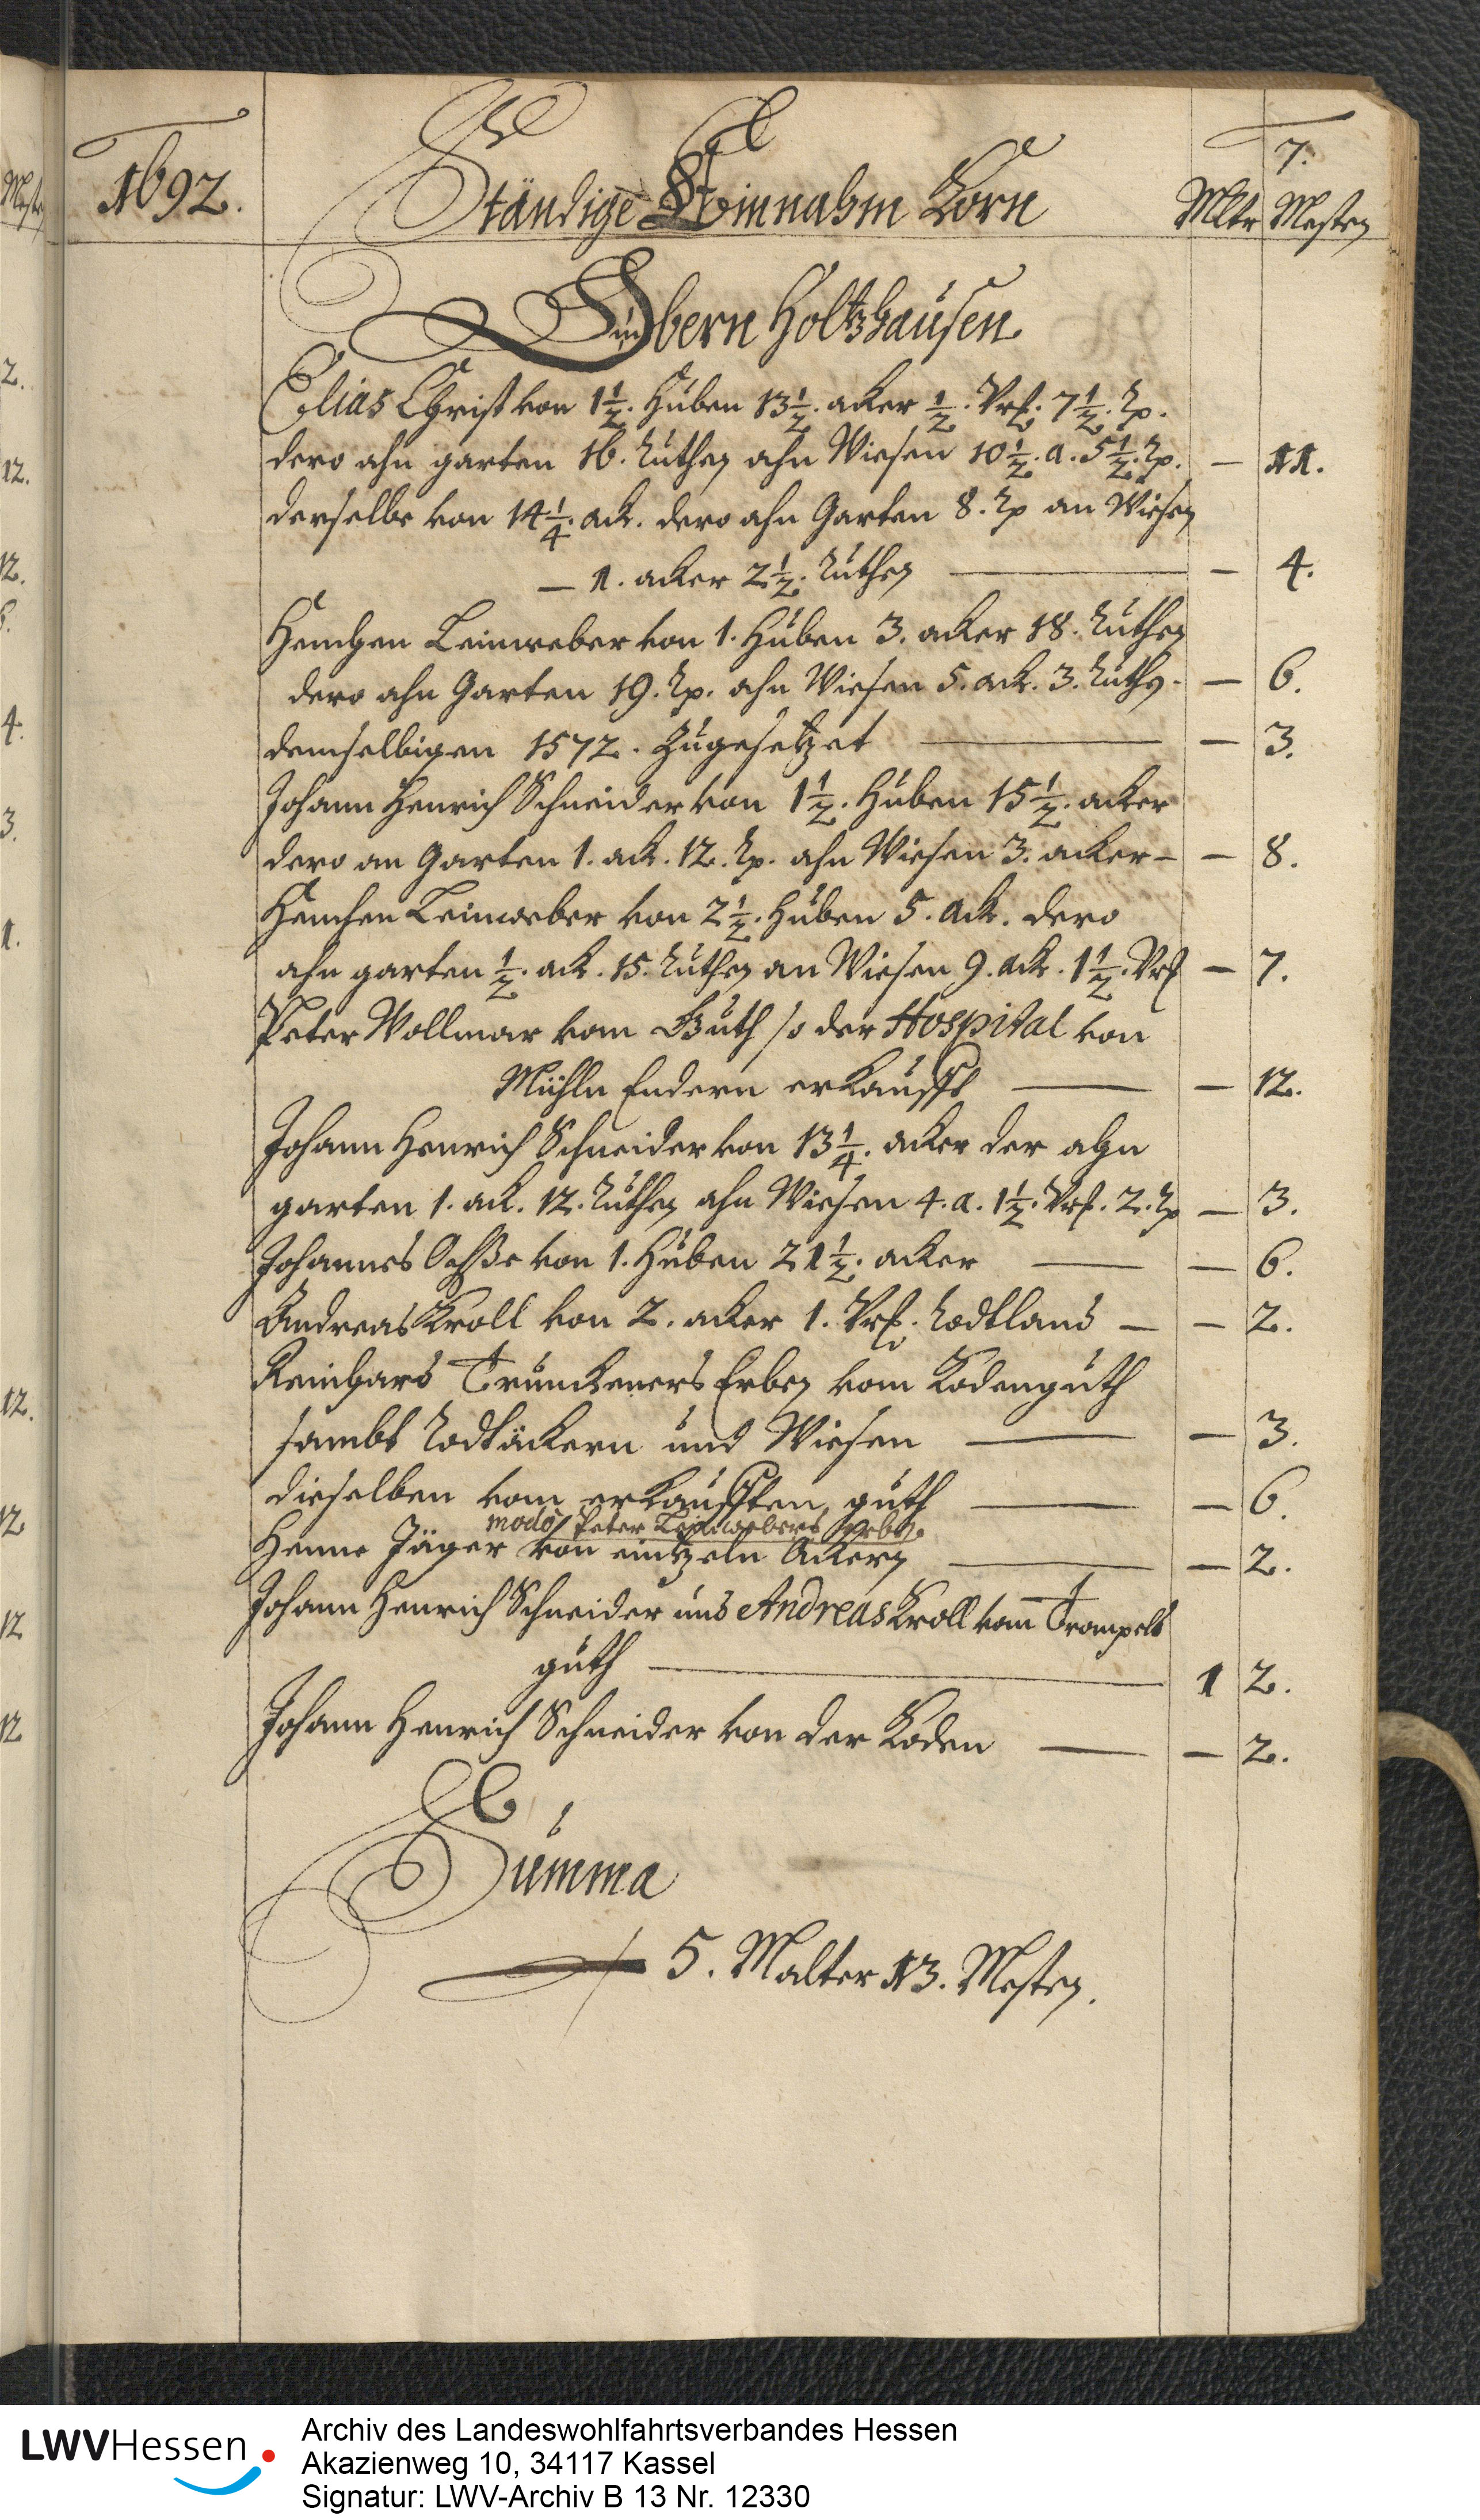 7.
1692. Ständige Einnahm Korn Mltr Mesten
Zu Obern Holtzhausen
Elias Christ von 1 1/2. Huben 13 1/2. acker 1/2. Vrf. 7 1/2. Rp.
dero ahn garten 16. Ruthen ahn Wiesen 10 1/2. a. 5 1/2. Rp. — 11.
derselbe von 14 1/4. ack. dero ahn Garten 8. Rp an Wiesen
— 1. acker 2 1/2. Ruthen — — 4.
Henchen Leinweber von 1. Huben 3. acker 18. Ruthen
dero ahn Garten 19. Rp. ahn Wiesen 5. ack. 3. Ruthen. — 6.
demselbigen 1572. Zugesetzet — — 3.
Johann Henrich Schneider von 1 1/2. Huben 15 1/2. acker
dero an Garten 1. ack. 12. Rp. ahn Wiesen 3. acker — — 8.
Henchen Leinweber von 2 1/2. Huben 5. ack. dero
ahn garten 1/2. ack. 15. Ruthen an Wiesen 9. ack. 1 1/2. Vrf — 7.
Peter Vollmar vom Guth so der Hospital von
Mühln Endern erkaufft — — 12.
Johann Henrich Schneider von 13 1/4. acker der ahn
garten 1. ack. 12. Ruthen ahn Wiesen 4. a. 1 1/2. Vrf. 2. Rp — 3.
Johannes Ochße von 1. Huben 21 1/2. acker — — 6.
Andreas Kroll von 2. acker 1. Vrf. Rodtland — — 2.
Reinhard Trunckeners Erben vom Rodenguth
sambt Rodtäckern und Wiesen — — 3.
dieselben vom erkaufften guth — — 6.
modo Peter Leinwebers Erben.
Henne Jäger von eintzeln Ackern — — 2.
Johann Henrich Schneider und Andreas Kroll vom Trompelt
guth — 1 2.
Johann Henrich Schneider von der Roden — — 2.
Summa
5. Malter 13. Mesten.
LWVHessen
Archiv des Landeswohlfahrtsverbandes Hessen
Akazienweg 10, 34117 Kassel
Signatur: LWV-Archiv B 13 Nr. 12330